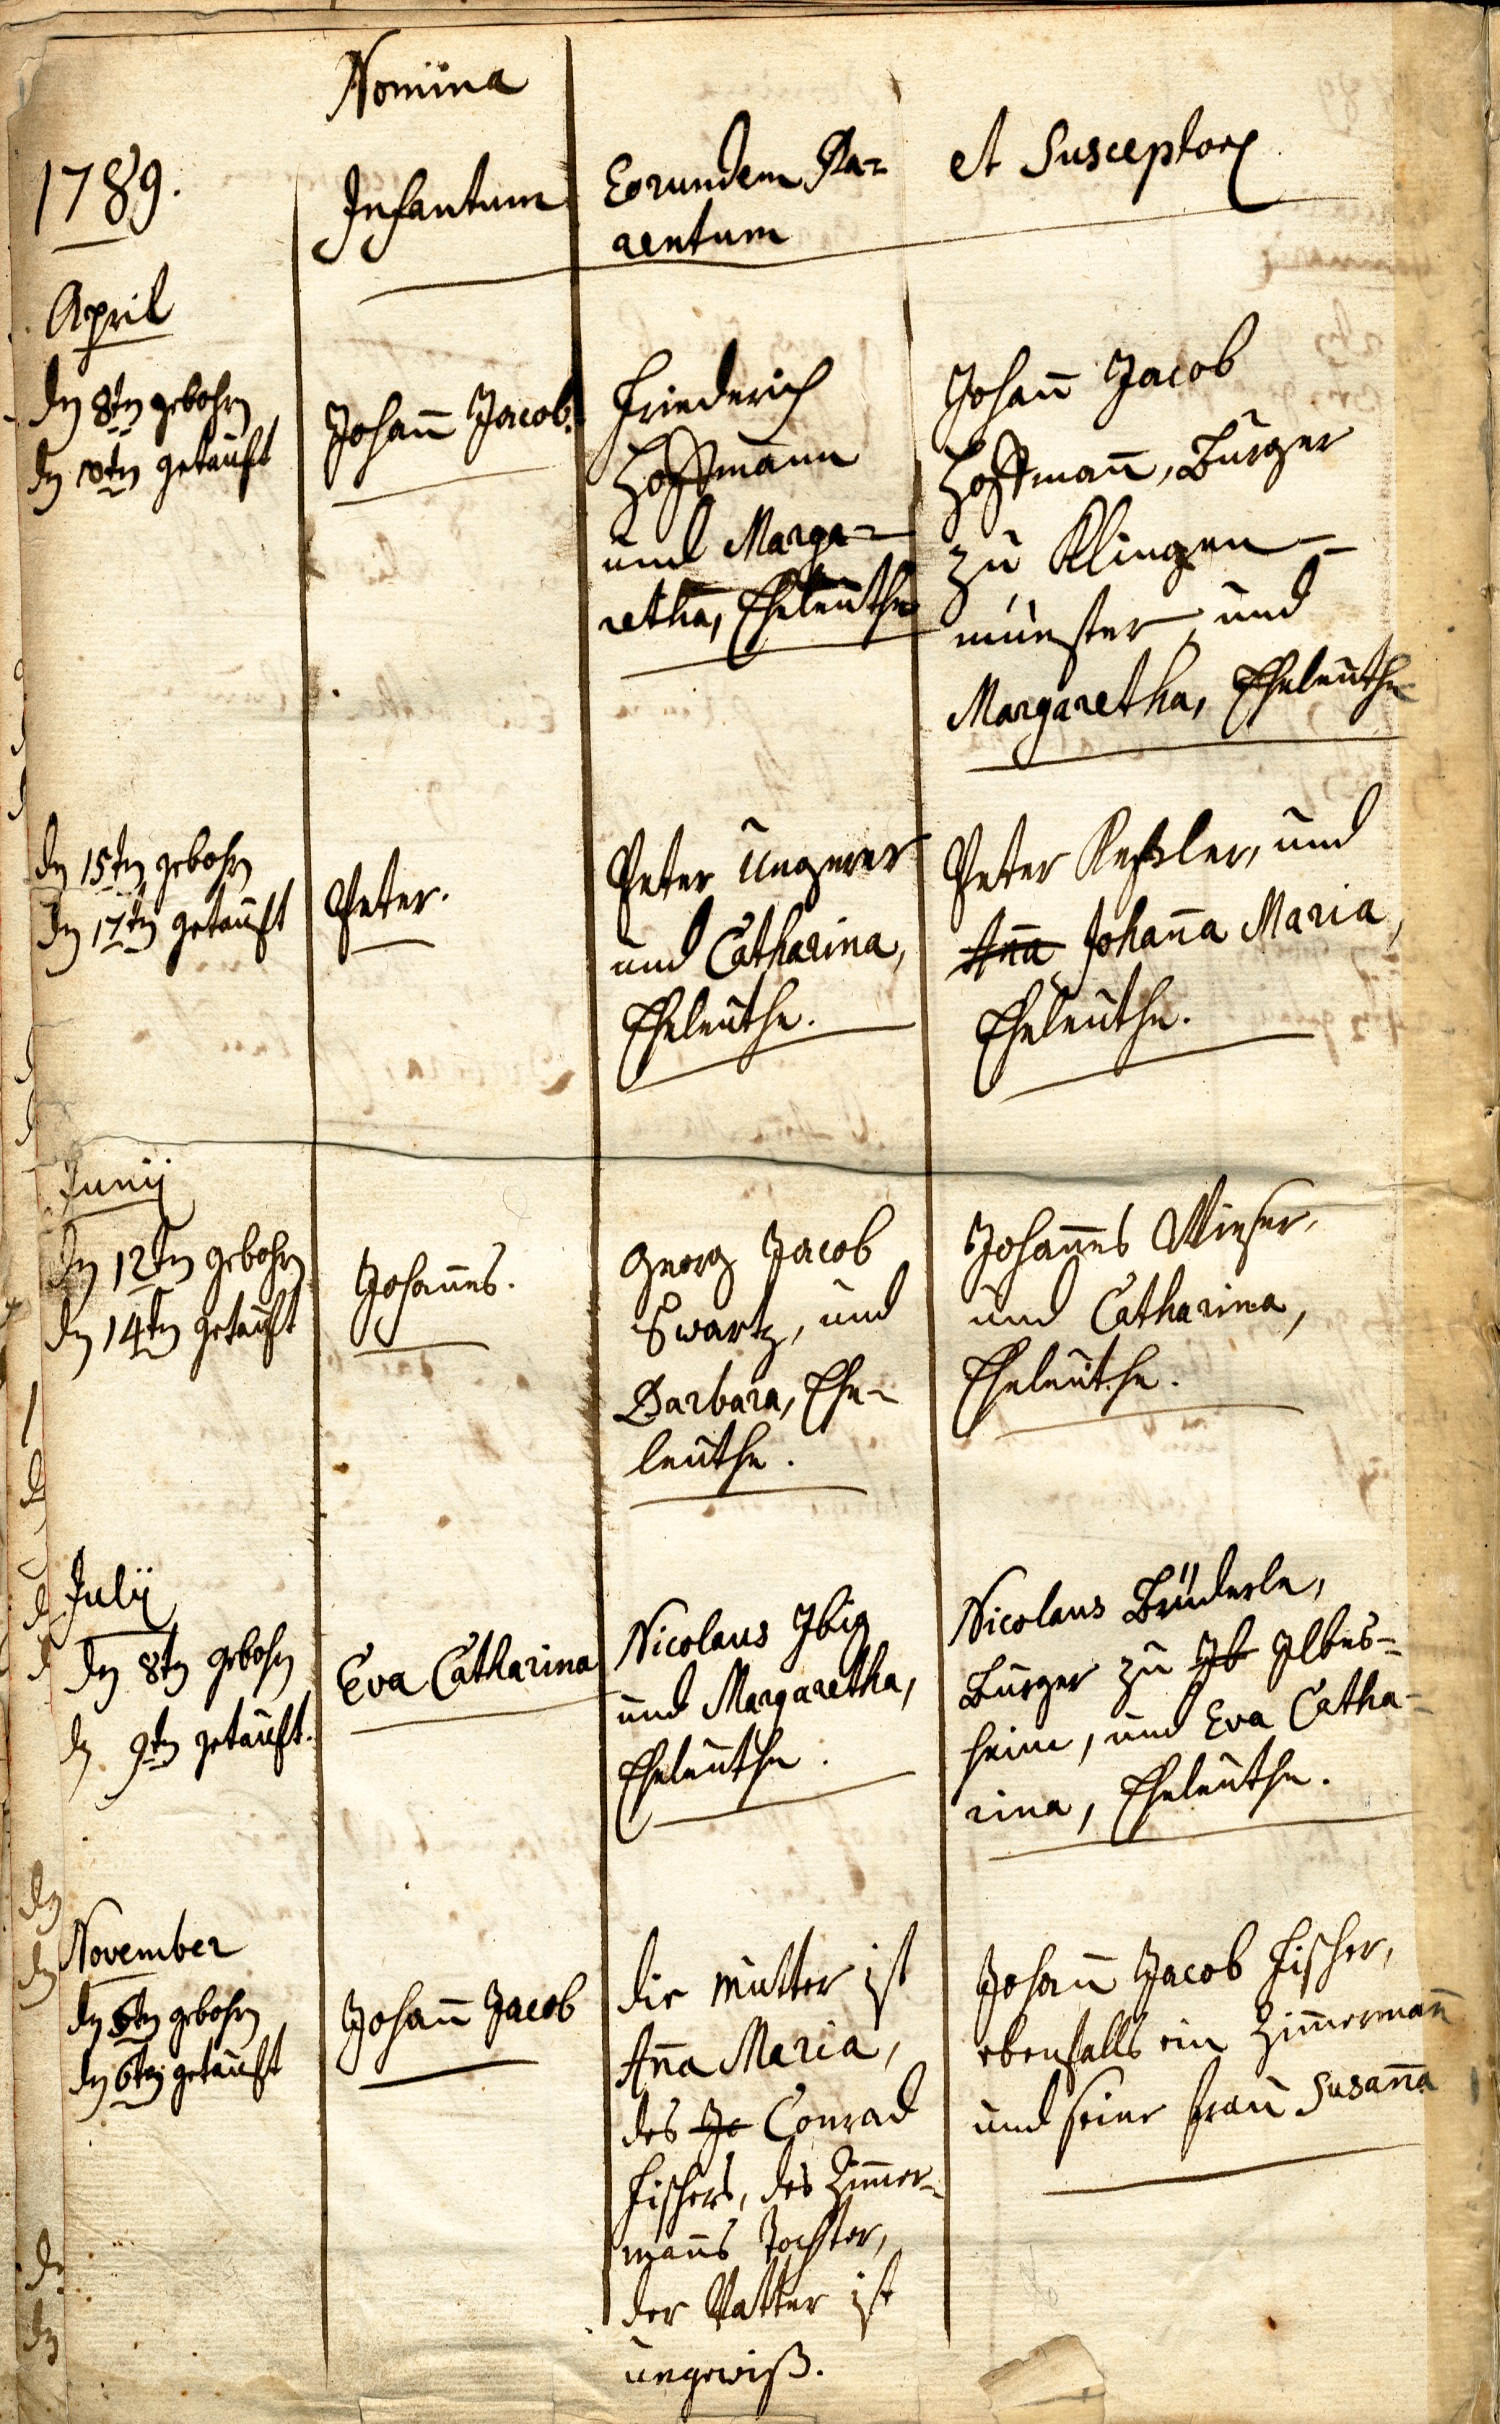 Nomina
1789.
Infantum
Eorundem Pa=
rentum
et Susceptorꝝ
April
dn 8tn gebohrn
dn 10tn getauft
Johan̄ Jacob.
Friederich
Hoffmann
und Marga=
retha, Eheleuthe
Johan̄ Jacob
Hoffman̄, Burger
zu Klingen-
münster, und
Margaretha, Eheleuthe
dn 15tn gebohrn
dn 17tn getauft
Peter.
Peter Ungerer
und Catharina,
Eheleuthe.
Peter Keßler, und
An̄a Johan̄a Maria,
Eheleuthe.
Junij
dn 12tn gebohrn
dn 14tn getauft
Johan̄es.
Georg Jacob
Swartz, und
Barbara, Ehe-
leuthe.
Johan̄es Wieser,
und Catharina,
Eheleuthe.
Julij
dn 8tn gebohrn
dn 9tn getauft.
Eva Catharina
Nicolaus Ibig
und Margaretha,
Eheleuthe.
Nicolaus Brüderle,
Burger zu Ib Ilbes=
heim, und Eva Catha-
rina, Eheleuthe.
November
dn 5tn gebohrn
dn 6tn getauft
Johan̄ Jacob
die Mutter ist
An̄a Maria,
des Jc Conrad
Fischers, des Zim̄er-
man̄s Tochter,
der Vatter ist
ungewiß.
Johan̄ Jacob Fischer,
ebenfalls ein Zim̄erman̄
und seine Frau Susan̄a